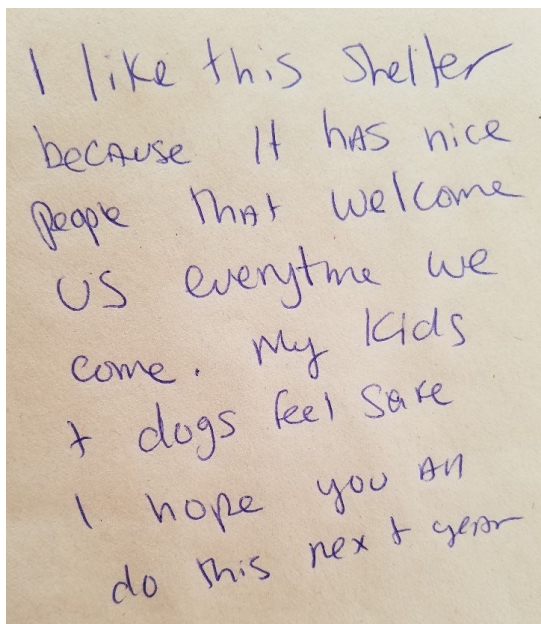 I like this shelter
because It has nice
people that welcome
us everytme we
come. My kids
+ dogs feel safe
I hope you all
do this next year